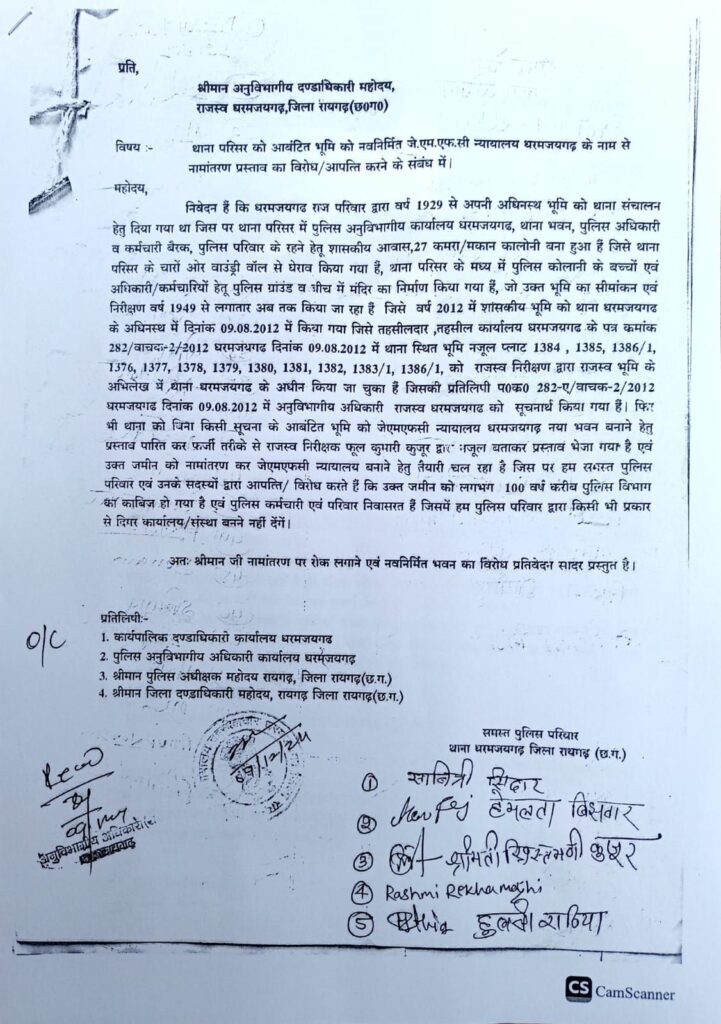 प्रति,
श्रीमान अनुविभागीय दण्डाधिकारी महोदय,
राजस्व धरमजयगढ़,जिला रायगढ़(छ0ग0)
विषय :- थाना परिसर को आबंटित भूमि को नवनिर्मित जे.एम.एफ.सी न्यायालय धरमजयगढ़ के नाम से
नामांतरण प्रस्ताव का विरोध/आपत्ति करने के संबंध में।
महोदय,
निवेदन हैं कि धरमजयगढ राज परिवार द्वारा वर्ष 1929 से अपनी अधिनस्थ भूमि को थाना संचालन
हेतु दिया गया था जिस पर थाना परिसर में पुलिस अनुविभागीय कार्यालय धरमजयगढ, थाना भवन, पुलिस अधिकारी
व कर्मचारी बैरक, पुलिस परिवार के रहने हेतु शासकीय आवास,27 कमरा/मकान कालोनी बना हुआ हैं जिसे थाना
परिसर के चारों ओर वाउंड्री वॉल से घेराव किया गया हैं, थाना परिसर के मध्य में पुलिस कोलानी के बच्चों एवं
अधिकारी/कर्मचारियों हेतु पुलिस ग्रांउड व बीच में मंदिर का निर्माण किया गया हैं, जो उक्त भूमि का सीमांकन एवं
निरीक्षण वर्ष 1949 से लगातार अब तक किया जा रहा हैं जिसे वर्ष 2012 में शासकीय भूमि को थाना धरमजयगढ
के अधिनस्थ में दिनांक 09.08.2012 में किया गया जिसे तहसीलदार ,तहसील कार्यालय धरमजयगढ के पत्र कमांक
282/वाचक-2/2012 धरमजयगढ दिनांक 09.08.2012 में थाना स्थित भूमि नजूल प्लाट 1384 , 1385, 1386/1,
1376, 1377, 1378, 1379, 1380, 1381, 1382, 1383/1, 1386/1, को राजस्व निरीक्षण द्वारा राजस्व भूमि के
अभिलेख में थाना धरमजयगढ के अधीन किया जा चुका हैं जिसकी प्रतिलिपी प0क0 282-ए/वाचक-2/2012
धरमजयगढ दिनांक 09.08.2012 में अनुविभागीय अधिकारी राजस्व धरमजयगढ को सूचनार्थ किया गया हैं। फिर
भी थाना को विना किसी सूचना के आबंटित भूमि को जेएमएफसी न्यायालय धरमजयगढ़ नया भवन बनाने हेतु
प्रस्ताव पारित कर फर्जी तरीके से राजस्व निरीक्षक फूल कुमारी कुजूर द्वारा नजूल बताकर प्रस्ताव भेजा गया है एवं
उक्त जमीन को नामांतरण कर जेएमएफसी न्यायालय बनाने हेतु तैयारी चल रहा है जिस पर हम समस्त पुलिस
परिवार एवं उनके सदस्यों द्वारा आपत्ति/ विरोध करते हैं कि उक्त जमीन को लगभग 100 वर्ष करीब पुलिस विभाग
का काबिज हो गया है एवं पुलिस कर्मचारी एवं परिवार निवासरत हैं जिसमें हम पुलिस परिवार द्वारा किसी भी प्रकार
से दिगर कार्यालय/संस्था बनने नहीं देंगें।
अतः श्रीमान जी नामांतरण पर रोक लगाने एवं नवनिर्मित भवन का विरोध प्रतिवेदन सादर प्रस्तुत है।
प्रतिलिपी:-
1. कार्यपालिक दण्डाधिकारी कार्यालय धरमजयगढ
2. पुलिस अनुविभागीय अधिकारी कार्यालय धरमजयगढ़
3. श्रीमान पुलिस अधीक्षक महोदय रायगढ़, जिला रायगढ़(छ.ग.)
4. श्रीमान जिला दण्डाधिकारी महोदय, रायगढ़ जिला रायगढ़(छ.ग.)
O/C
समस्त पुलिस परिवार
थाना धरमजयगढ़ जिला रायगढ़ (छ.ग.)
① सावित्री सिदार
② हेमलता बिसवार
③ श्रीमती कुजूर
④ Rashmi Rekha
⑤ राठिया
अनुविभागीय अधिकारी
CS CamScanner